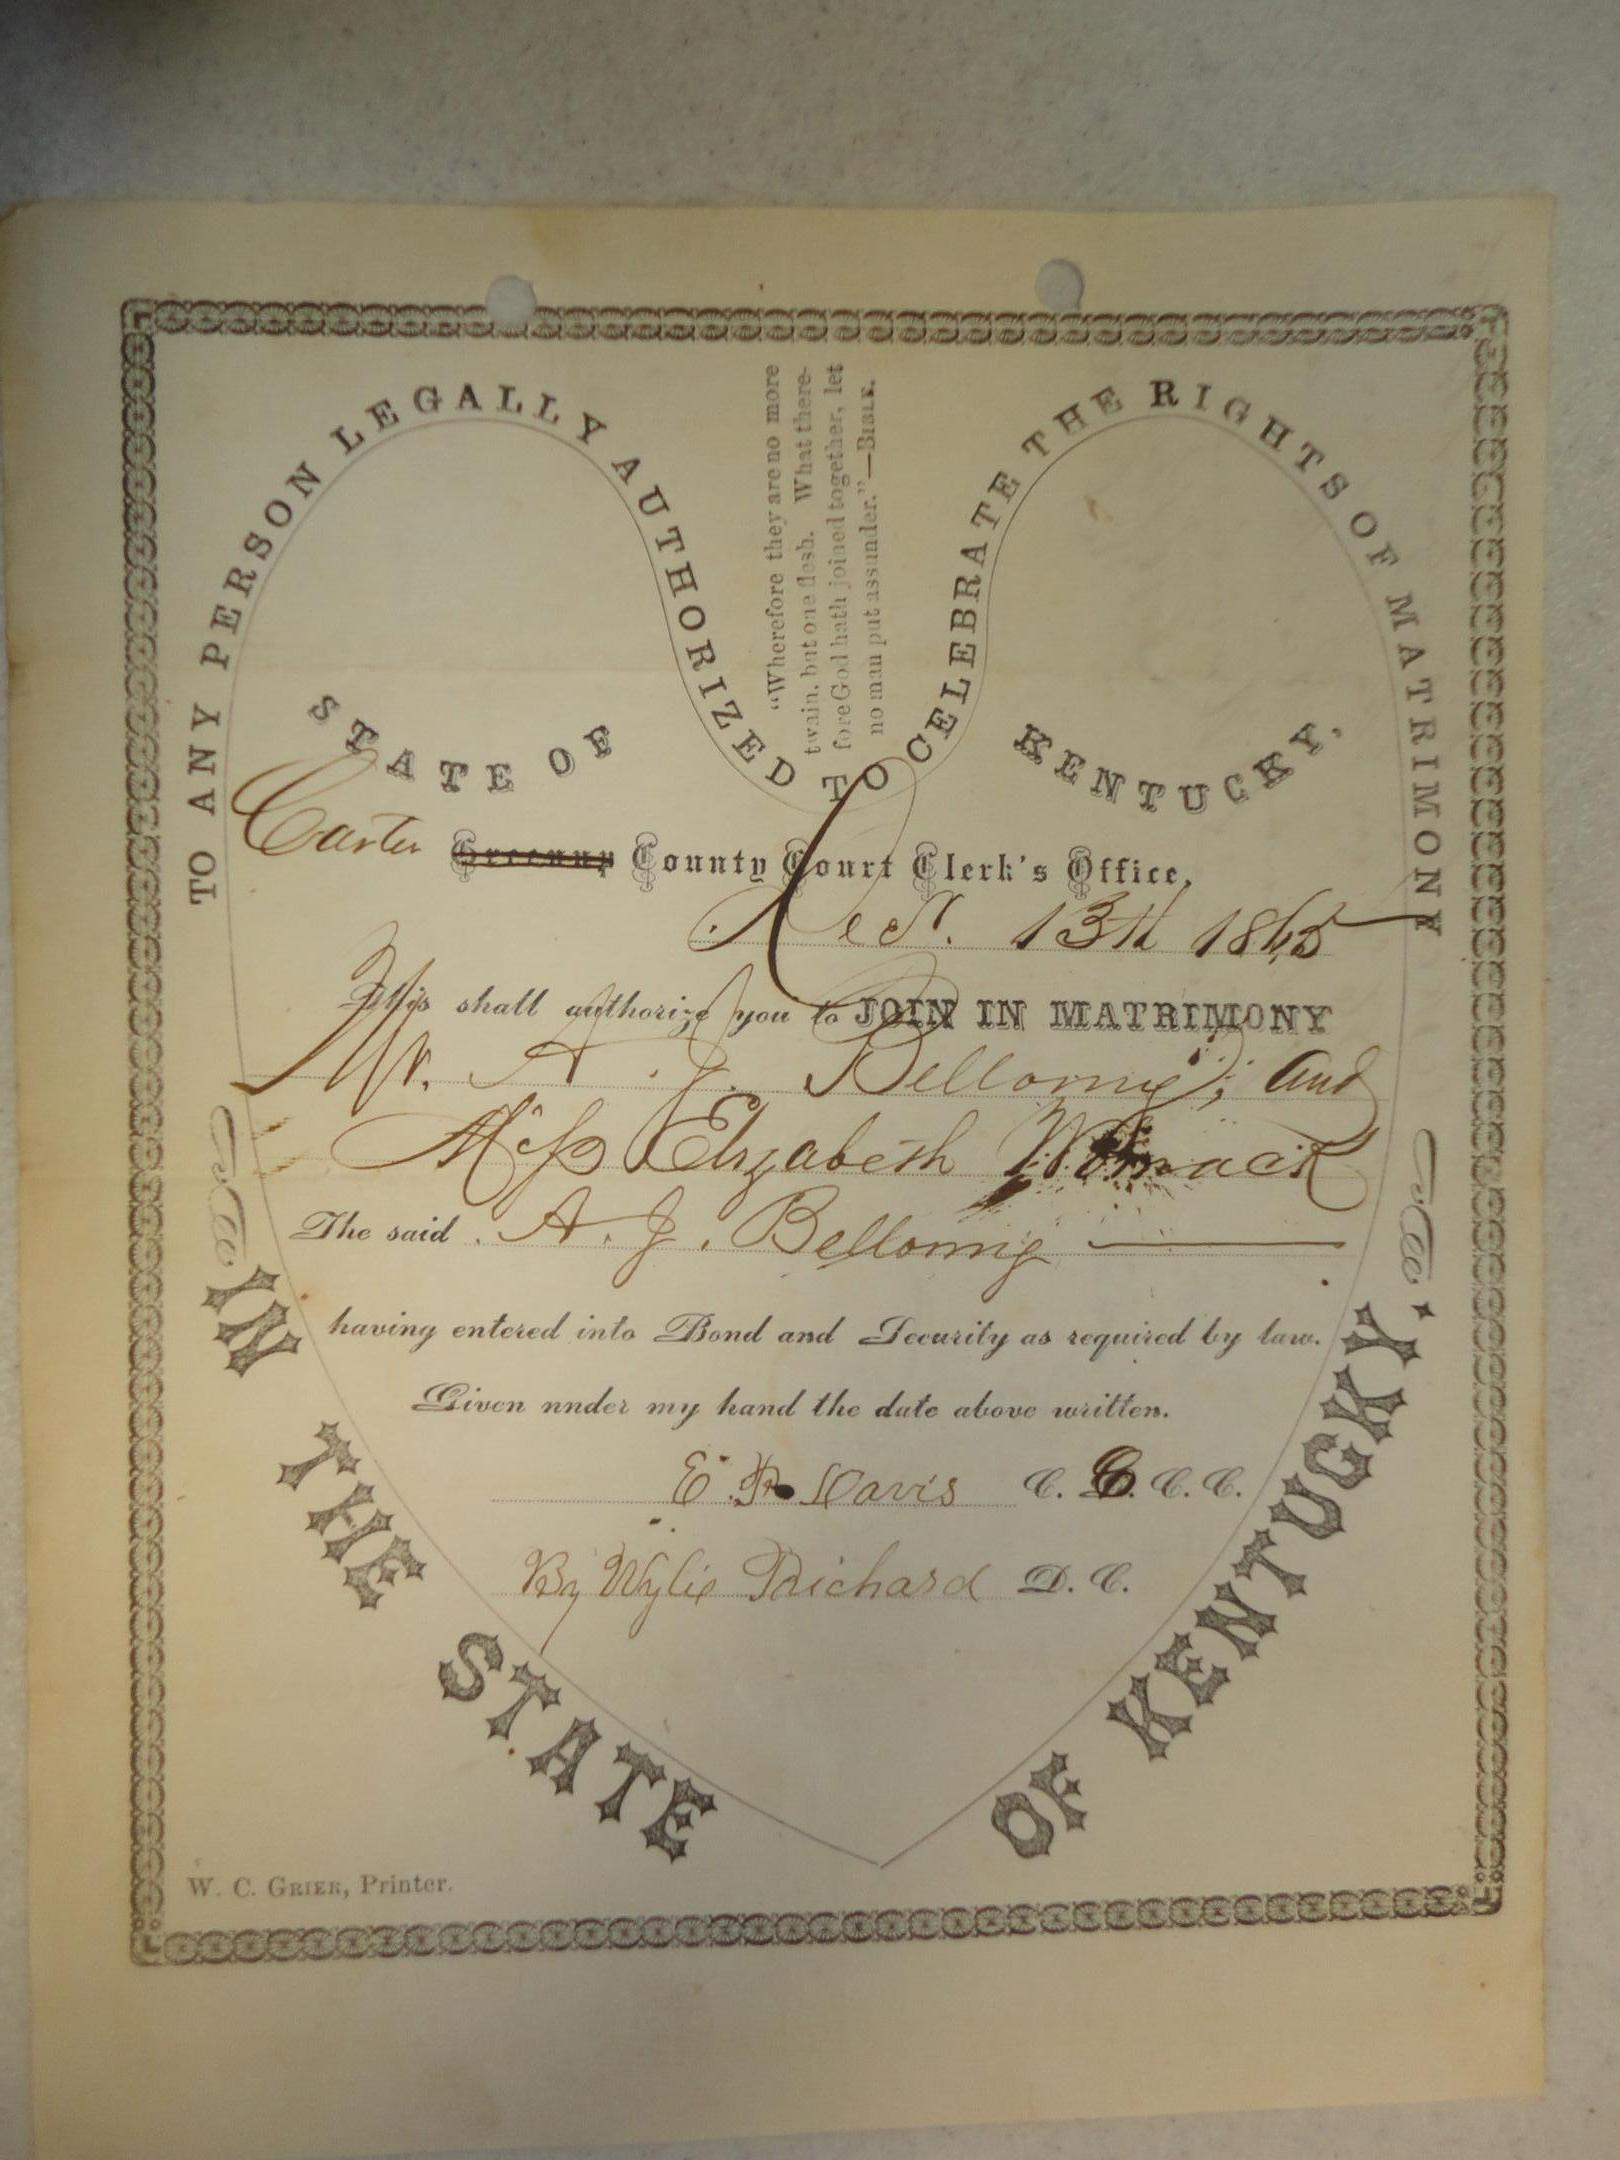 TO ANY PERSON LEGALLY AUTHORIZED TO CELEBRATE THE RIGHTS OF MATRIMONY
IN THE STATE OF KENTUCKY.
"Wherefore they are no more
twain, but one flesh. What there-
fore God hath joined together, let
no man put assunder."—BIBLE.
STATE OF KENTUCKY,
Carter Greenup County Court Clerk's Office,
Dec. 13th 1865
This shall authorize you to JOIN IN MATRIMONY
Mr. A. J. Bellomy, and
Miss Elizabeth Womack
The said A. J. Bellomy
having entered into Bond and Security as required by law.
Given nnder my hand the date above written.
E. R. Davis C. C. C. C.
By Wylie Prichard D. C.
W. C. GRIER, Printer.